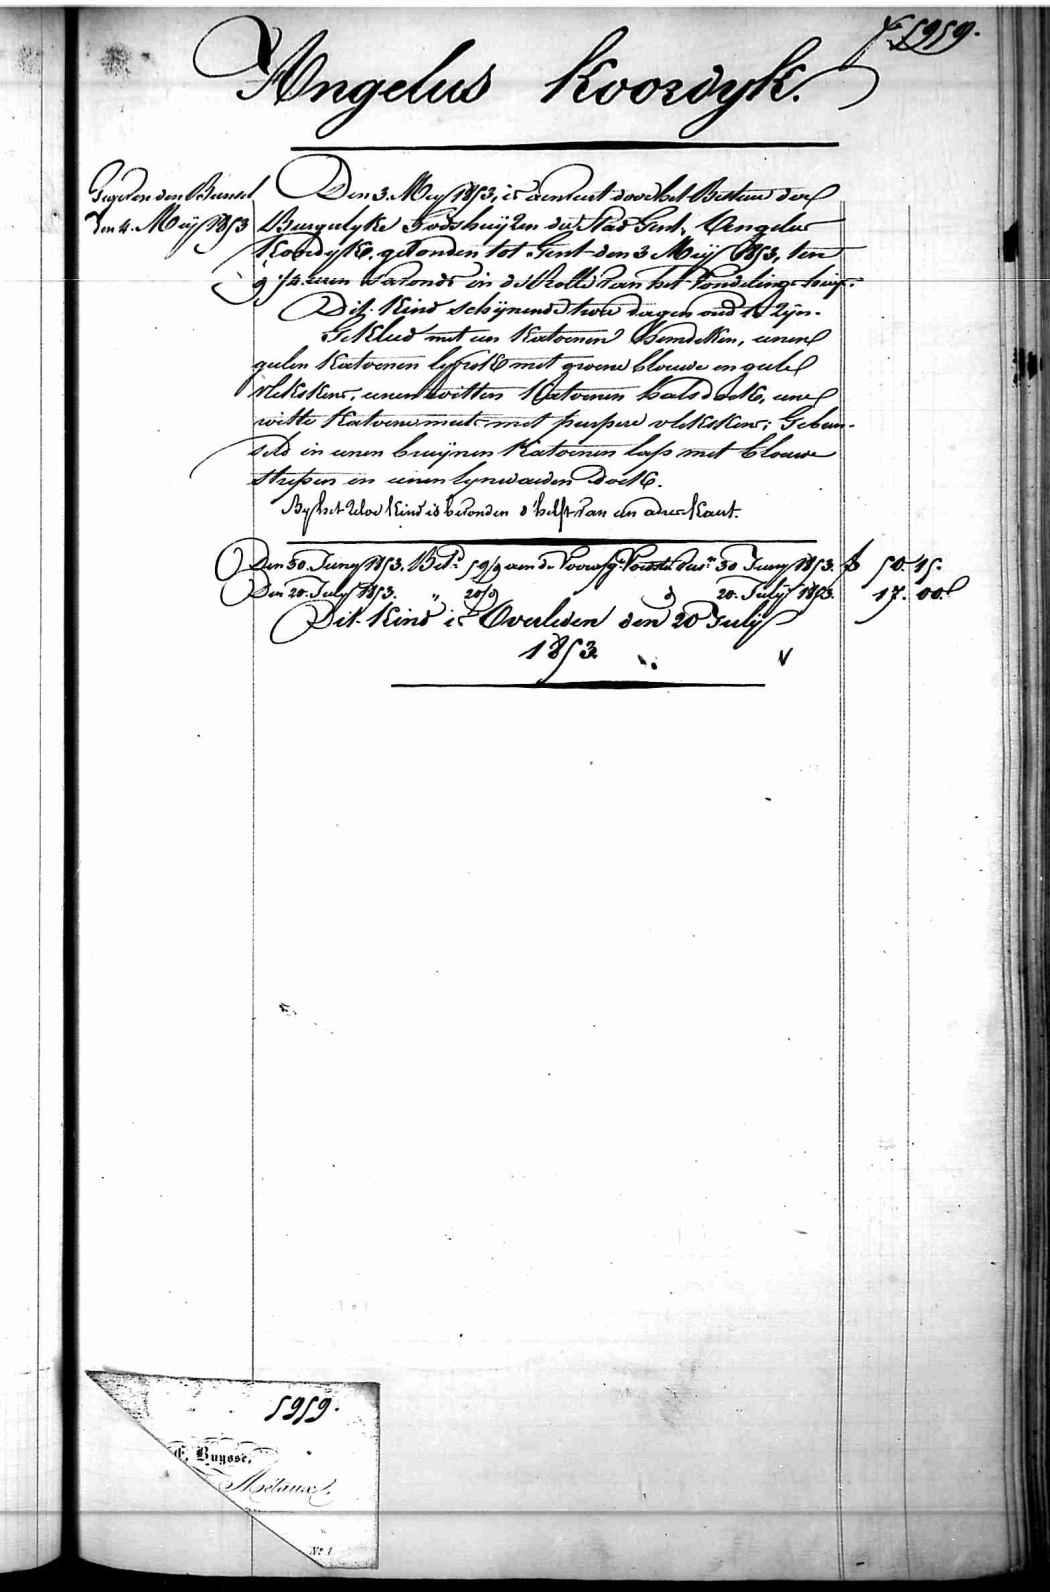 N° 5959.
Angelus Koordyk.
Gegeven den Bunsel
den 4. Meij 1853
Den 3. Meij 1853, is aenveert door het Bestuer der
Burgerlyke Godshuijzen der Stad Gent, Angelus
Koordijk, gevonden tot Gent den 3 Meij 1853, ten
9 1/2 uren 's avonds in de Rolle van het Vondelinge-huis.
Dit Kind schijnende twee dagen oud te Zijn.
Gekleed met een Katoenen hemdeken, eenen
geelen Katoenen lijfrok met groene blouwe en geele
vlekskens, eenen witten Katoenen halsdoek, eene
witte Katoene muts met purpere vlekskens; Gebun-
seld in eenen bruijnen Katoenen lap met blouwe
strepen en eenen lynwaeden doek.
By het Zelve Kind is bevonden d'helft van een adres Kaert.
Den 30 Juny 1853. Bet. 59/9 aen de Voorsg. Voedst. sus. 30 Juny 1853. f 50. 45.
Den 20. July 1853. " 20/9 d 20. Julij 1853. 17. 00.
Dit Kind is Overleden den 20 Julij
1853.
5959.
E. Buysse,
Métaux.
N° 1